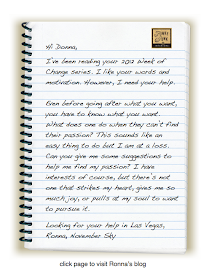 Hi Donna,
I've been reading your 2012 Week of
Change series. I like your words and
motivation. However, I need your help.
Even before going after what you want,
you have to know what you want.
What does one do when they can't find
their passion? This sounds like an
easy thing to do but I am at a loss.
Can you give me some suggestions to
help me find my passion? I have
interests of course, but there's not
one that strikes my heart, gives me so
much joy, or pulls at my soul to want
to pursue it.
Looking for your help in Las Vegas,
Ronna, November Sky
click page to visit Ronna's blog